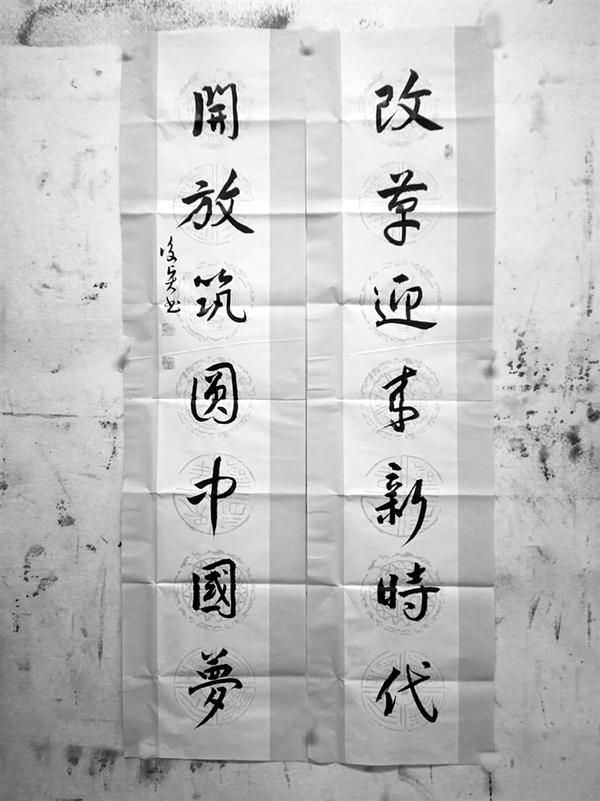 改革迎来新时代
開放筑圆中國夢